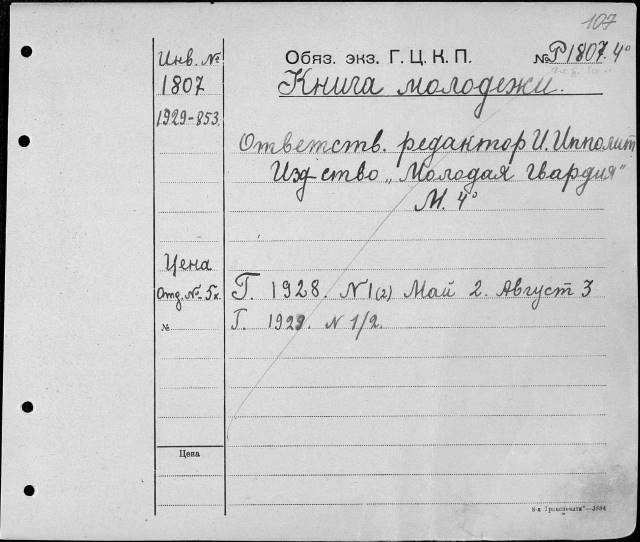 107
Инв. №
1807
1929-853.
Обяз. экз. Г. Ц. К. П.
№ Р1807. 4°
Книга молодежи.
Ответств. редактор И. Ипполит
Изд-ство „Молодая гвардия"
М. 4°
Цена
Отд. № 5к.
Г. 1928. N 1(2) Май 2. Август 3
№
Г. 1929. N 1/2.
Цена
8-я „Транспечати"—3884